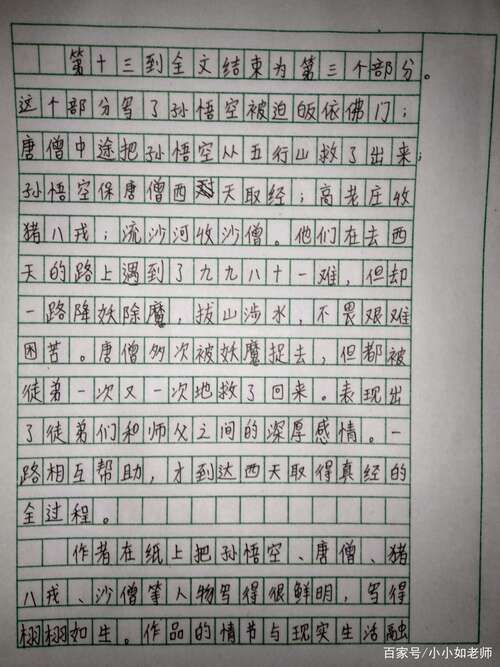 第十三到全文结束为第三个部分。
这个部分写了孙悟空被迫皈依佛门；
唐僧中途把孙悟空从五行山救了出来；
孙悟空保唐僧西天取经；高老庄收
猪八戎；流沙河收沙僧。他们在去西
天的路上遇到了九九八十一难，但却
一路降妖除魔，拔山涉水，不畏艰难
困苦。唐僧多次被妖魔捉去，但都被
徒弟一次又一次地救了回来。表现出
了徒弟们和师父之间的深厚感情。一
路相互帮助，才到达西天取得真经的
全过程。
作者在纸上把孙悟空、唐僧、猪
八戎、沙僧等人物写得很鲜明，写得
栩栩如生。作品的情节与现实生活融
百家号/小小如老师